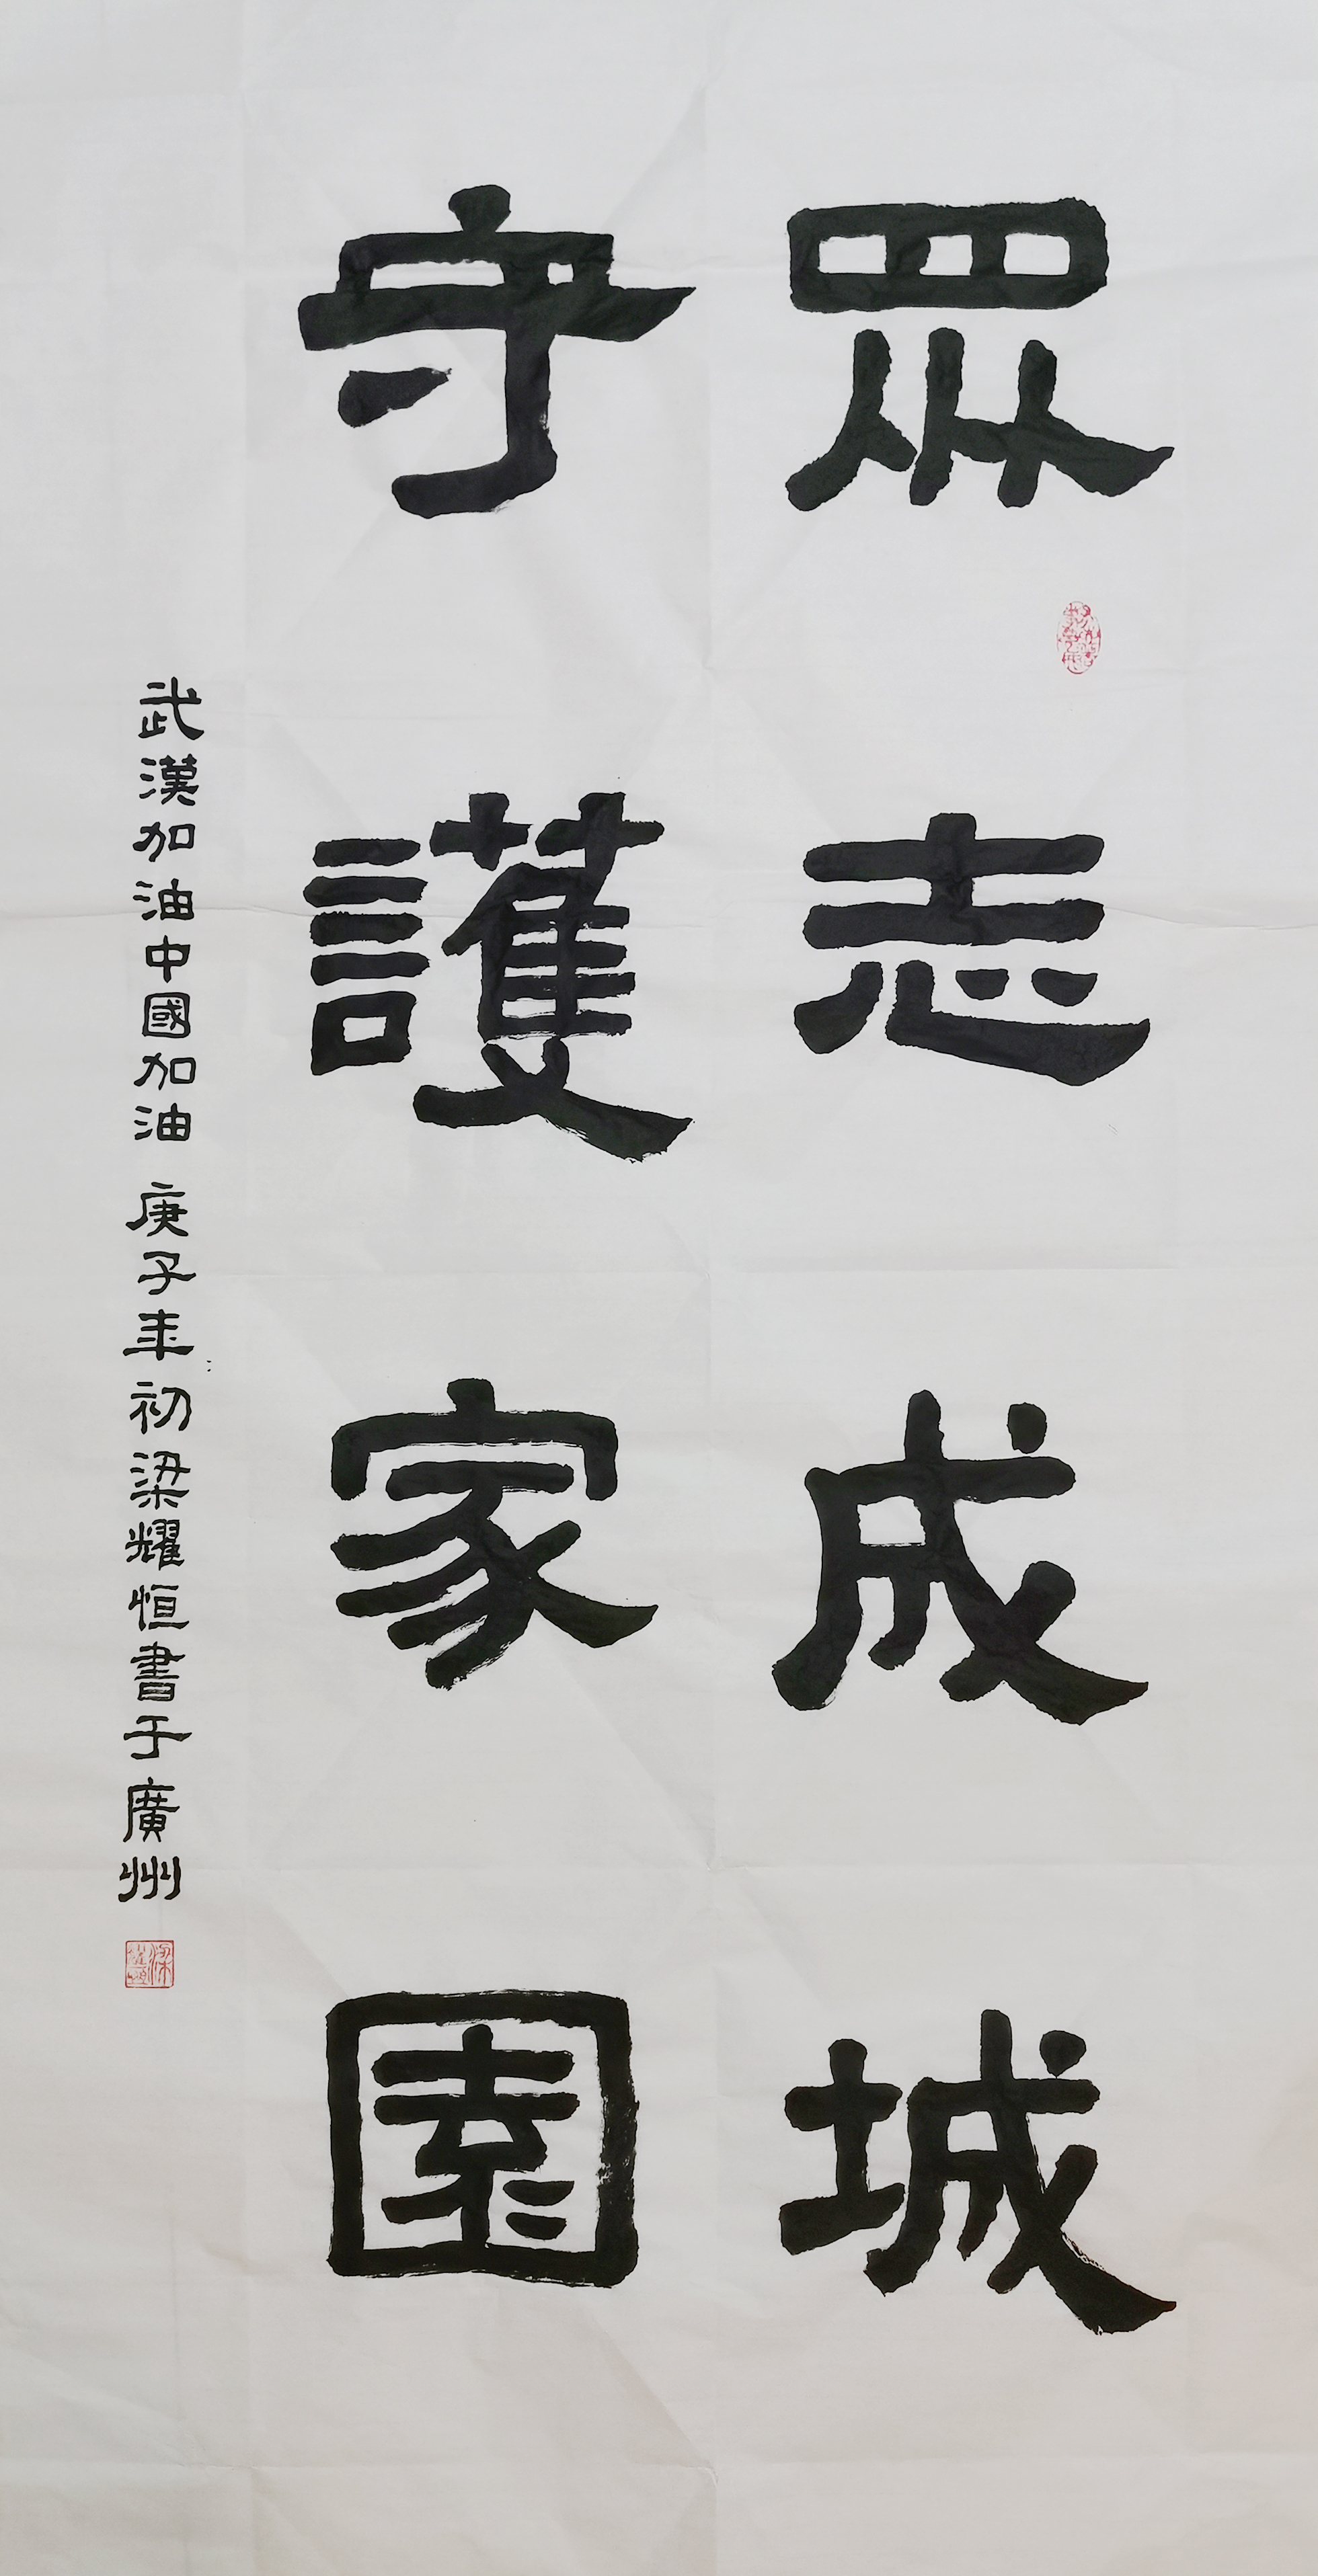 眾志成城
守護家園
武漢加油中國加油 庚子年初梁耀恒書于廣州